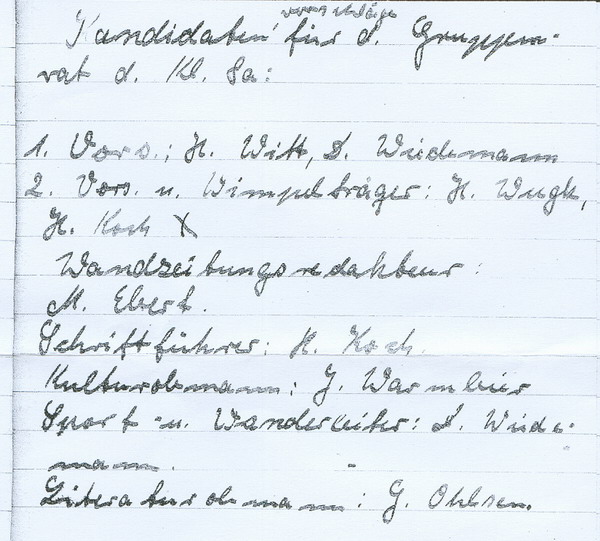 Kandidaten für d. Gruppen-
rat d. Kl. 8a:
1. Vors.: H. Witt, D. Wiedemann
2. Vors. u. Wimpelträger: H.
H. Koch X
Wandzeitungsredakteur:
M. Ebert.
Schriftführer: H. Koch.
Kulturobmann: J. Warmbier
Sport- u. Wanderleiter: D. Wiede-
mann.
Literaturobmann: G. Ohlsen.